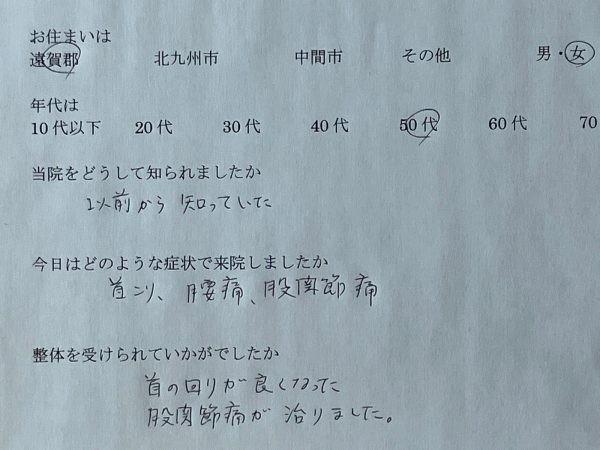 お住まいは
遠賀郡 北九州市 中間市 その他 男・女
年代は
10代以下 20代 30代 40代 50代 60代 70
当院をどうして知られましたか
以前から知っていた
今日はどのような症状で来院しましたか
首こり、腰痛、股関節痛
整体を受けられていかがでしたか
首の回りが良くなった
股関節痛が治りました。